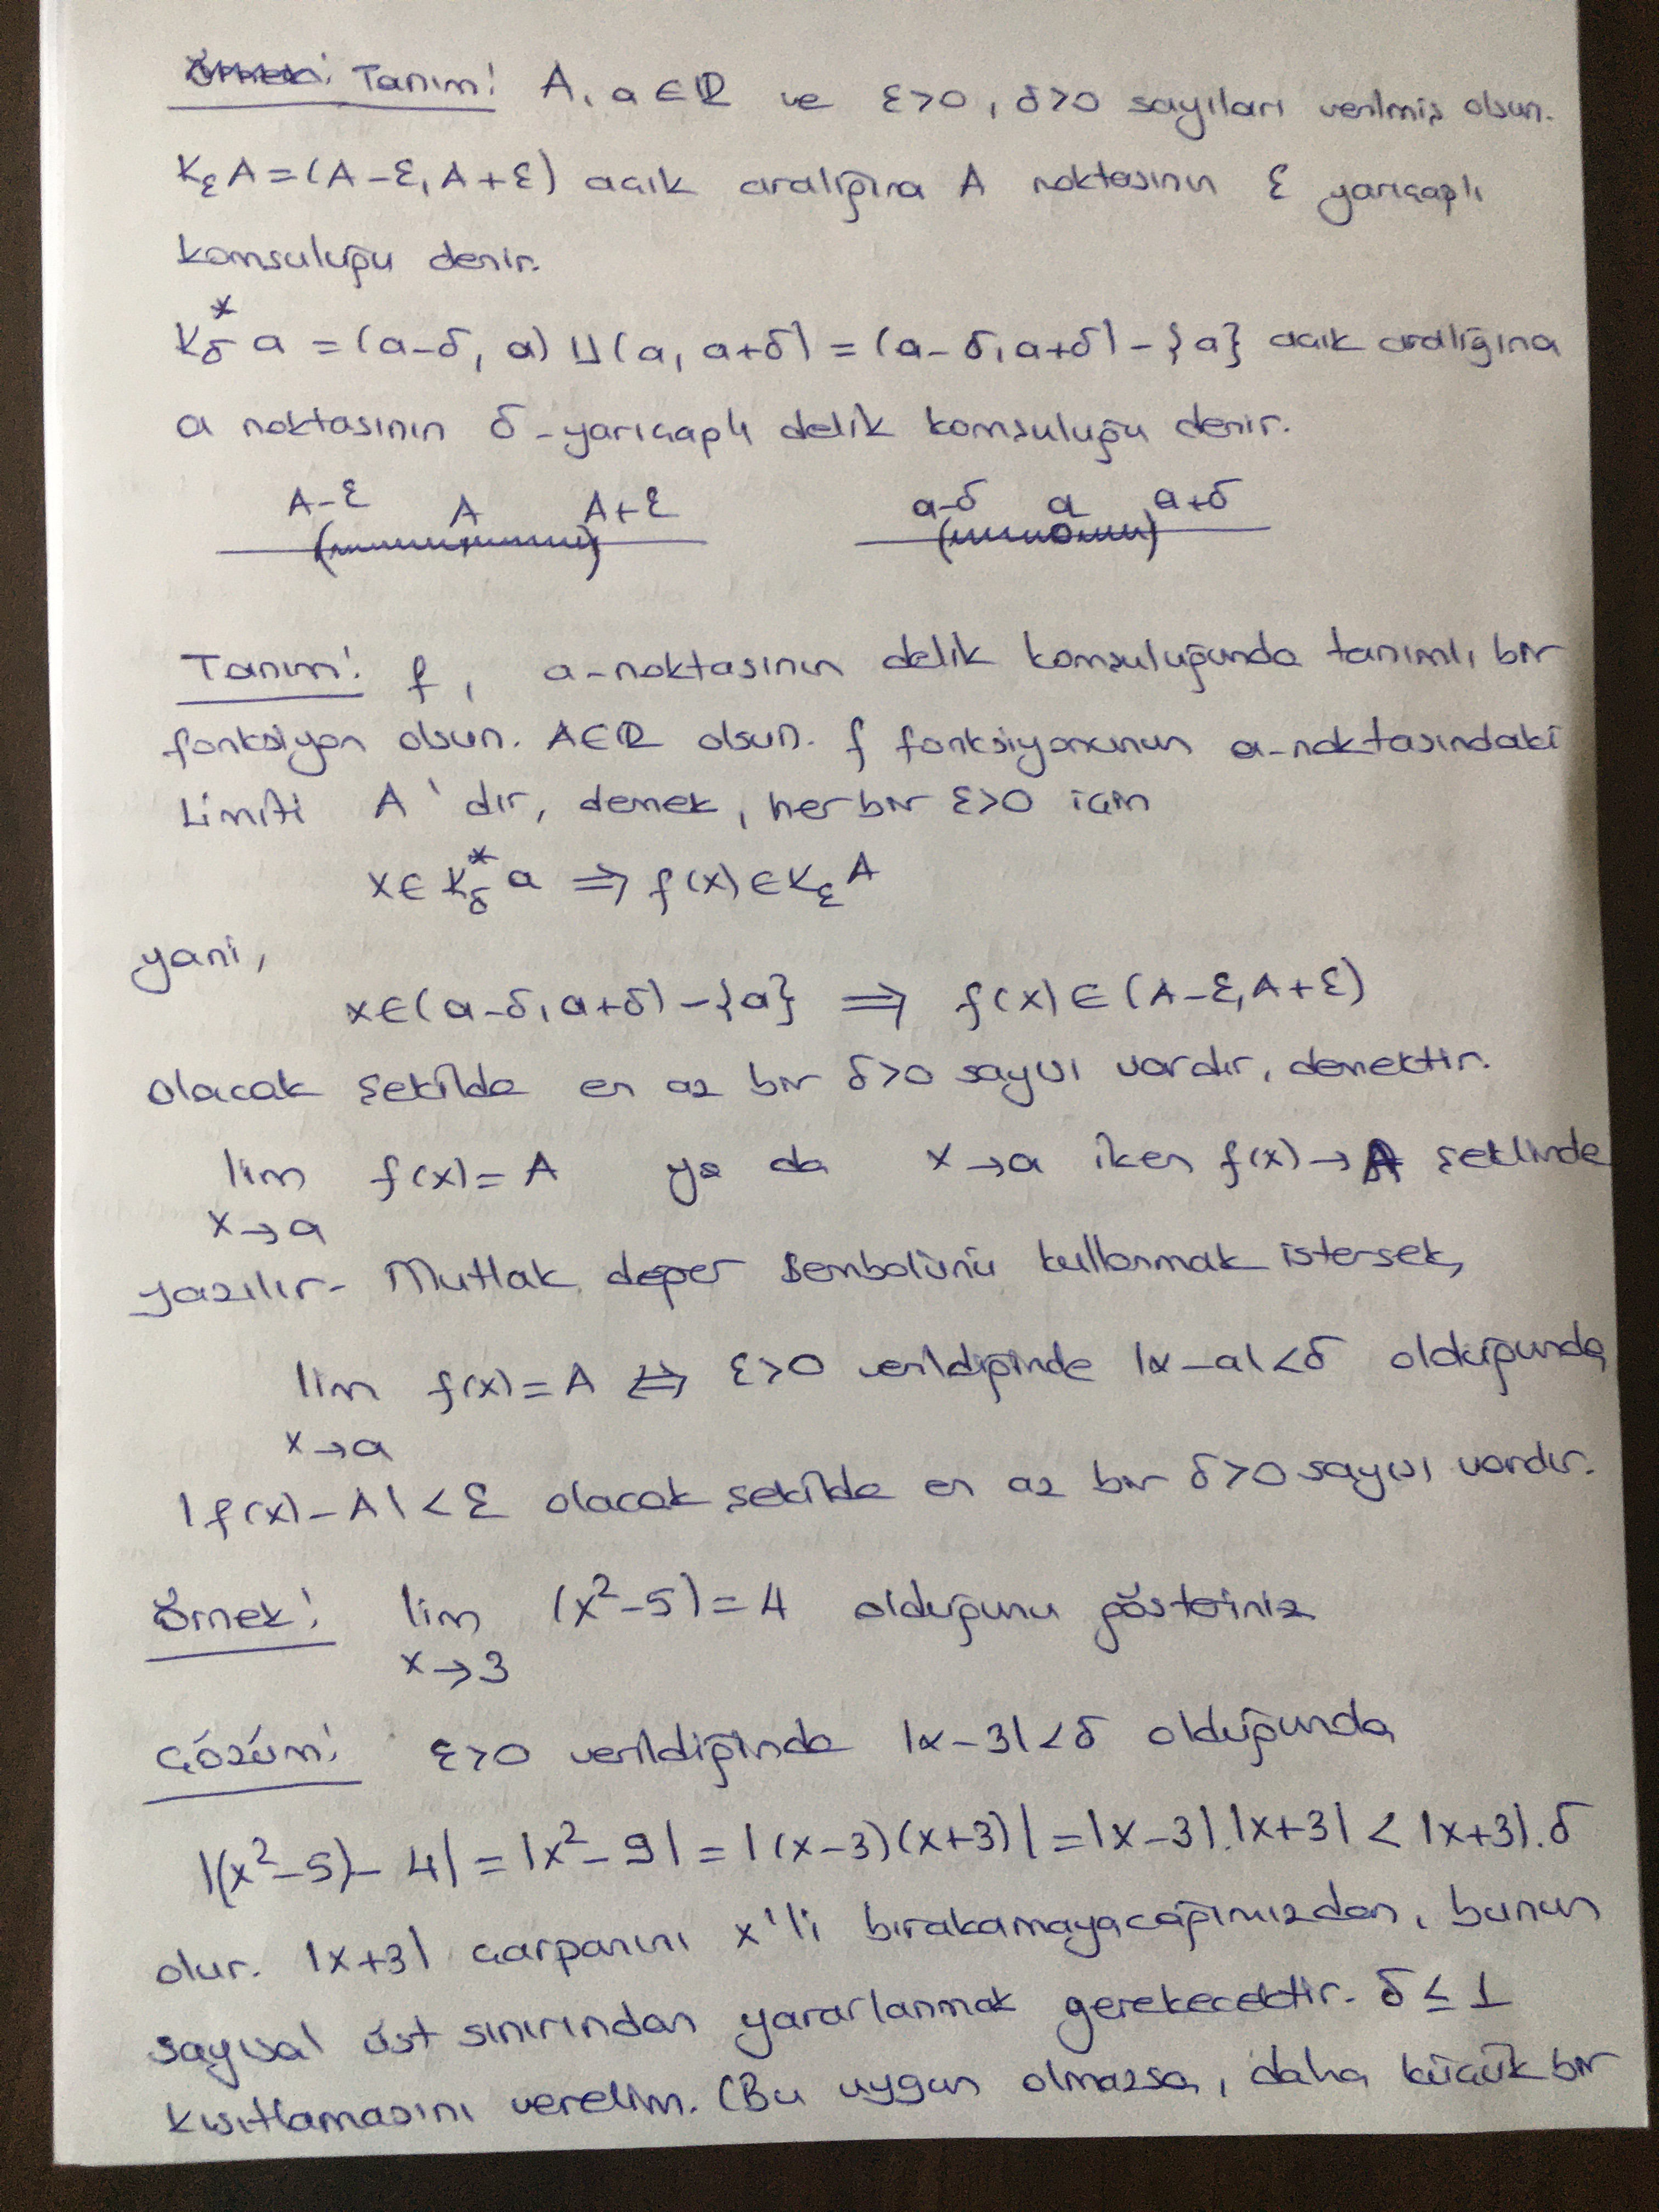 Örnek: Tanım: A, a ∈ ℝ ve ε>0, δ>0 sayıları verilmiş olsun.
K_ε A = (A-ε, A+ε) açık aralığına A noktasının ε yarıçaplı
komşuluğu denir.
K*_δ a = (a-δ, a) ∪ (a, a+δ) = (a-δ, a+δ) - {a} açık aralığına
a noktasının δ-yarıçaplı delik komşuluğu denir.
A-ε A A+ε a-δ a a+δ
Tanım: f, a-noktasının delik komşuluğunda tanımlı bir
fonksiyon olsun. A∈ℝ olsun. f fonksiyonunun a-noktasındaki
Limiti A'dır, demek, her bir ε>0 için
x∈ K*_δ a ⇒ f(x) ∈ K_ε A
yani,
x∈(a-δ, a+δ) - {a} ⇒ f(x) ∈ (A-ε, A+ε)
olacak şekilde en az bir δ>0 sayısı vardır, demektir.
lim f(x) = A ya da x→a iken f(x)→A şeklinde
x→a
yazılır. Mutlak değer sembolünü kullanmak istersek,
lim f(x) = A ⇔ ε>0 verildiğinde |x-a|<δ olduğunda
x→a
|f(x)-A| < ε olacak şekilde en az bir δ>0 sayısı vardır.
Örnek: lim (x²-5) = 4 olduğunu gösteriniz
x→3
Çözüm: ε>0 verildiğinde |x-3|<δ olduğunda
|(x²-5)-4| = |x²-9| = |(x-3)(x+3)| = |x-3|.|x+3| < |x+3|.δ
olur. |x+3| çarpanını x'li bırakamayacağımızdan, bunun
sayısal üst sınırından yararlanmak gerekecektir. δ ≤ 1
kısıtlamasını verelim. (Bu uygun olmazsa, daha küçük bir